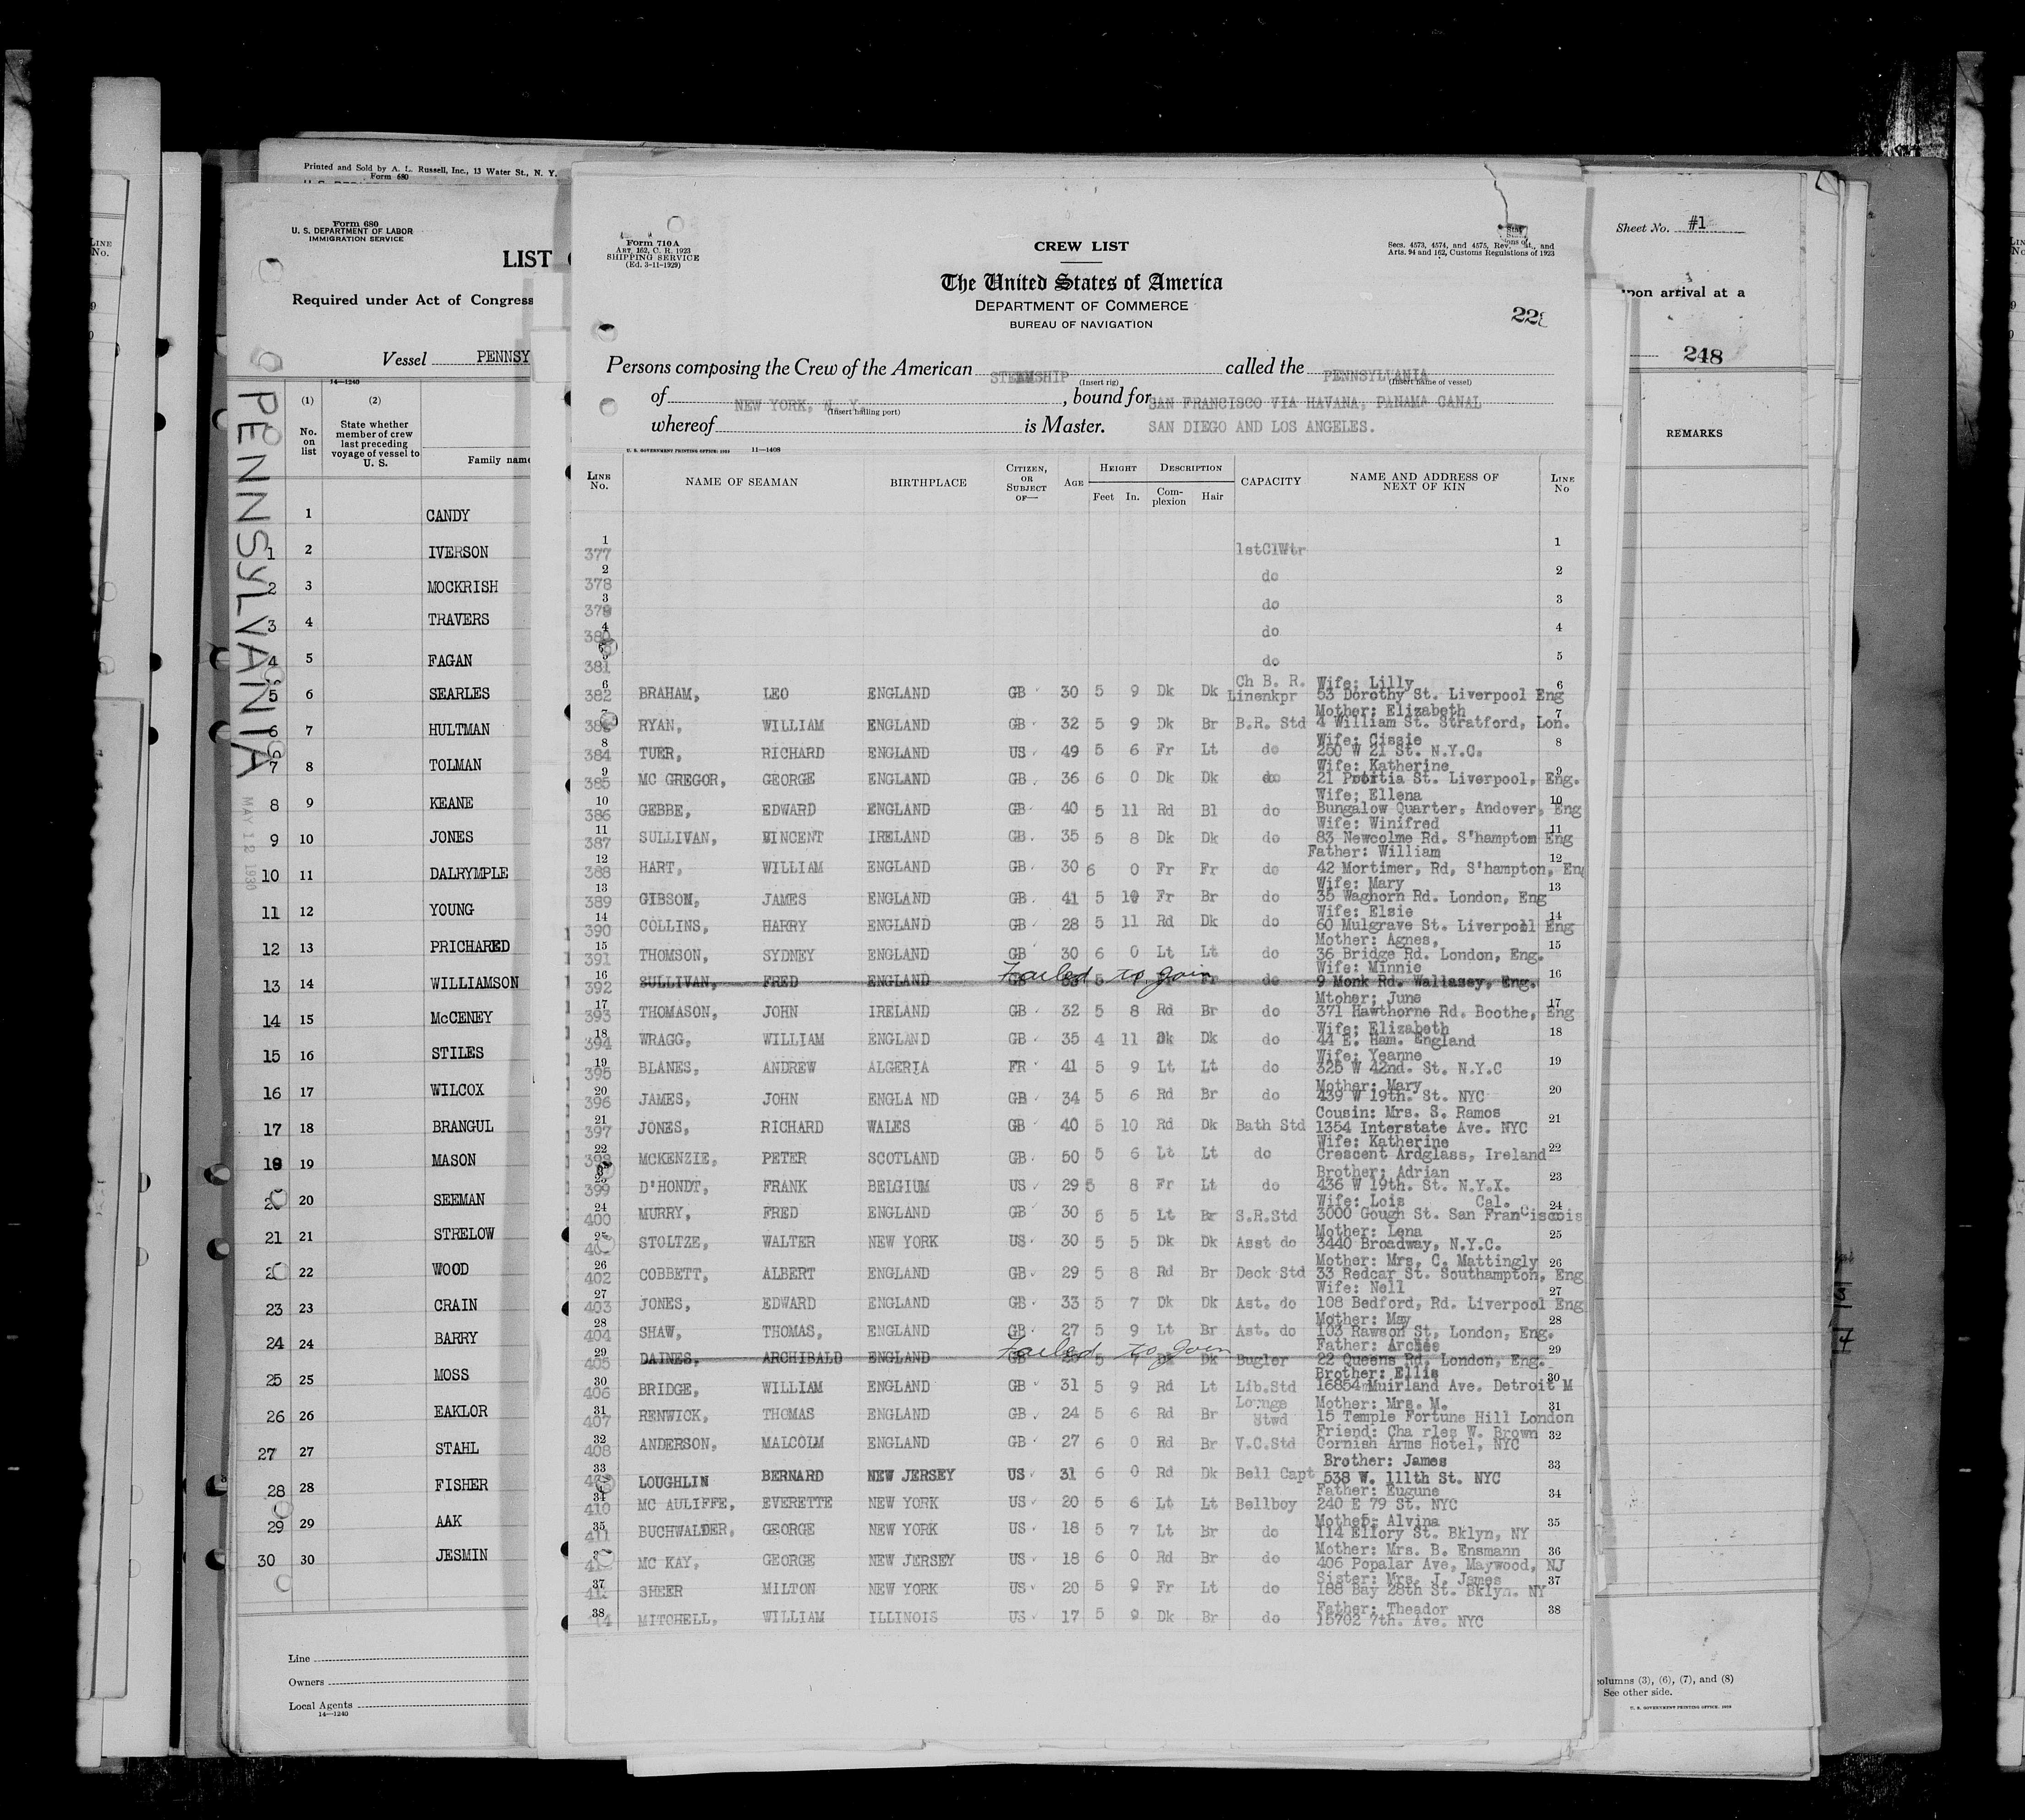 Printed and Sold by A. L. Russell, Inc., 13 Water St., N. Y.
Form 680
Form 680
U. S. DEPARTMENT OF LABOR
IMMIGRATION SERVICE
LIST
Required under Act of Congress
Vessel PENNSY
14—1240
(1) (2)
No. on list
State whether member of crew last preceding voyage of vessel to U. S.
Family name
PENNSYLVANIA
MAY 12 1930
1 CANDY
1 2 IVERSON
2 3 MOCKRISH
3 4 TRAVERS
4 5 FAGAN
5 6 SEARLES
6 7 HULTMAN
7 8 TOLMAN
8 9 KEANE
9 10 JONES
10 11 DALRYMPLE
11 12 YOUNG
12 13 PRICHARED
13 14 WILLIAMSON
14 15 McCENEY
15 16 STILES
16 17 WILCOX
17 18 BRANGUL
18 19 MASON
20 SEEMAN
21 21 STRELOW
22 WOOD
23 23 CRAIN
24 24 BARRY
25 25 MOSS
26 26 EAKLOR
27 27 STAHL
28 28 FISHER
29 29 AAK
30 30 JESMIN
Line
Owners
Local Agents
14—1240
Form 710 A
ART. 162, C. R. 1923
SHIPPING SERVICE
(Ed. 3-11-1929)
CREW LIST
Secs. 4573, 4574, and 4575, Rev. St., and
Arts. 94 and 162, Customs Regulations of 1923
The United States of America
DEPARTMENT OF COMMERCE
BUREAU OF NAVIGATION
22
Persons composing the Crew of the American STEAMSHIP called the PENNSYLVANIA
(Insert rig) (Insert name of vessel)
of NEW YORK, N. Y. , bound for SAN FRANCISCO VIA HAVANA, PANAMA CANAL
(Insert hailing port)
whereof is Master. SAN DIEGO AND LOS ANGELES.
U. S. GOVERNMENT PRINTING OFFICE: 1929 11—1408
LINE No. NAME OF SEAMAN BIRTHPLACE CITIZEN, OR SUBJECT OF— AGE HEIGHT Feet In. DESCRIPTION Complexion Hair CAPACITY NAME AND ADDRESS OF NEXT OF KIN LINE No
1 377 1stClWtr 1
2 378 do 2
3 379 do 3
4 380 do 4
5 381 do 5
6 382 BRAHAM, LEO ENGLAND GB 30 5 9 Dk Dk Ch B. R. Linenkpr Wife: Lilly 53 Dorothy St. Liverpool Eng 6
7 383 RYAN, WILLIAM ENGLAND GB 32 5 9 Dk Br B.R. Std Mother: Elizabeth 4 William St. Stratford, Lon. 7
8 384 TUER, RICHARD ENGLAND US 49 5 6 Fr Lt do Wife: Cissie 250 W 21 St. N.Y.C. 8
9 385 MC GREGOR, GEORGE ENGLAND GB 36 6 0 Dk Dk do Wife: Katherine 21 Portia St. Liverpool, Eng. 9
10 386 GEBBE, EDWARD ENGLAND GB 40 5 11 Rd Bl do Wife; Ellena Bungalow Quarter, Andover, Eng 10
11 387 SULLIVAN, VINCENT IRELAND GB. 35 5 8 Dk Dk do Wife: Winifred 83 Newcolme Rd. S'hampton Eng 11
12 388 HART, WILLIAM ENGLAND GB 30 6 0 Fr Fr do Father: William 42 Mortimer, Rd, S'hampton, Eng 12
13 389 GIBSON, JAMES ENGLAND GB 41 5 10 Fr Br do Wife: Mary 35 Waghorn Rd. London, Eng 13
14 390 COLLINS, HARRY ENGLAND GB 28 5 11 Rd Dk do Wife: Elsie 60 Mulgrave St. Liverpool Eng 14
15 391 THOMSON, SYDNEY ENGLAND GB 30 6 0 Lt Lt do Mother: Agnes, 36 Bridge Rd. London, Eng. 15
16 392 SULLIVAN, FRED ENGLAND GB 5 Fr do Wife: Minnie 9 Monk Rd. Wallasey, Eng. 16
Failed to join
17 393 THOMASON, JOHN IRELAND GB 32 5 8 Rd Br do Mtoher; June 371 Hawthorne Rd. Boothe, Eng 17
18 394 WRAGG, WILLIAM ENGLAND GB 35 4 11 Dk Dk do Wife; Elizabeth 44 E. Ham. England 18
19 395 BLANES, ANDREW ALGERIA FR 41 5 9 Lt Lt do Wife: Yeanne 325 W 42nd. St. N.Y.C 19
20 396 JAMES, JOHN ENGLA ND GB 34 5 6 Rd Br do Mother: Mary 439 W 19th. St. NYC 20
21 397 JONES, RICHARD WALES GB 40 5 10 Rd Dk Bath Std Cousin: Mrs. S. Ramos 1354 Interstate Ave. NYC 21
22 398 MCKENZIE, PETER SCOTLAND GB 50 5 6 Lt Lt do Wife: Katherine Crescent Ardglass, Ireland 22
23 399 D'HONDT, FRANK BELGIUM US 29 5 8 Fr Lt do Brother; Adrian 436 W 19th. St. N.Y.X. 23
24 400 MURRY, FRED ENGLAND GB 30 5 5 Lt Br S.R.Std Wife: Lois Cal. 3000 Gough St. San Franciscois 24
25 STOLTZE, WALTER NEW YORK US 30 5 5 Dk Dk Asst do Mother: Lena 3440 Broadway, N.Y.C. 25
26 402 COBBETT, ALBERT ENGLAND GB 29 5 8 Rd Br Deck Std Mother: Mrs, C. Mattingly 33 Redcar St. Southampton, Eng 26
27 403 JONES, EDWARD ENGLAND GB 33 5 7 Dk Dk Ast. do Wife: Nell 108 Bedford, Rd. Liverpool Eng 27
28 404 SHAW, THOMAS, ENGLAND GB 27 5 9 Lt Br Ast. do Mother: May 103 Rawson St, London, Eng. 28
29 405 DAINES, ARCHIBALD ENGLAND GB 5 Dk Bugler Father: Archie 22 Queens Rd. London, Eng. 29
Failed to join
30 406 BRIDGE, WILLIAM ENGLAND GB 31 5 9 Rd Lt Lib.Std Brother: Ellis 16854 Muirland Ave. Detroit M 30
31 407 RENWICK, THOMAS ENGLAND GB 24 5 6 Rd Br Lounge Stwd Mother: Mrs. M. 15 Temple Fortune Hill London 31
32 408 ANDERSON, MALCOLM ENGLAND GB 27 6 0 Rd Br V.C.Std Friend: Cha rles W. Brown Cornish Arms Hotel, NYC 32
33 LOUGHLIN BERNARD NEW JERSEY US 31 6 0 Rd Dk Bell Capt Brother: James 538 W. 111th St. NYC 33
34 410 MC AULIFFE, EVERETTE NEW YORK US 20 5 6 Lt Lt Bellboy Father: Eugune 240 E 79 St. NYC 34
35 411 BUCHWALDER, GEORGE NEW YORK US 18 5 7 Lt Br do Mother: Alvina 114 Ellory St. Bklyn, NY 35
MC KAY, GEORGE NEW JERSEY US 18 6 0 Rd Br do Mother: Mrs. B. Ensmann 406 Popalar Ave, Maywood, NJ 36
37 SHEER MILTON NEW YORK US 20 5 9 Fr Lt do Sister: Mrs. J. James 188 Bay 28th St. Bklyn. NY 37
38 MITCHELL, WILLIAM ILLINOIS US 17 5 9 Dk Br do Father: Theador 15702 7th. Ave. NYC 38
Sheet No. #1
upon arrival at a
248
REMARKS
columns (3), (6), (7), and (8)
See other side.
U. S. GOVERNMENT PRINTING OFFICE: 1929
LINE No.